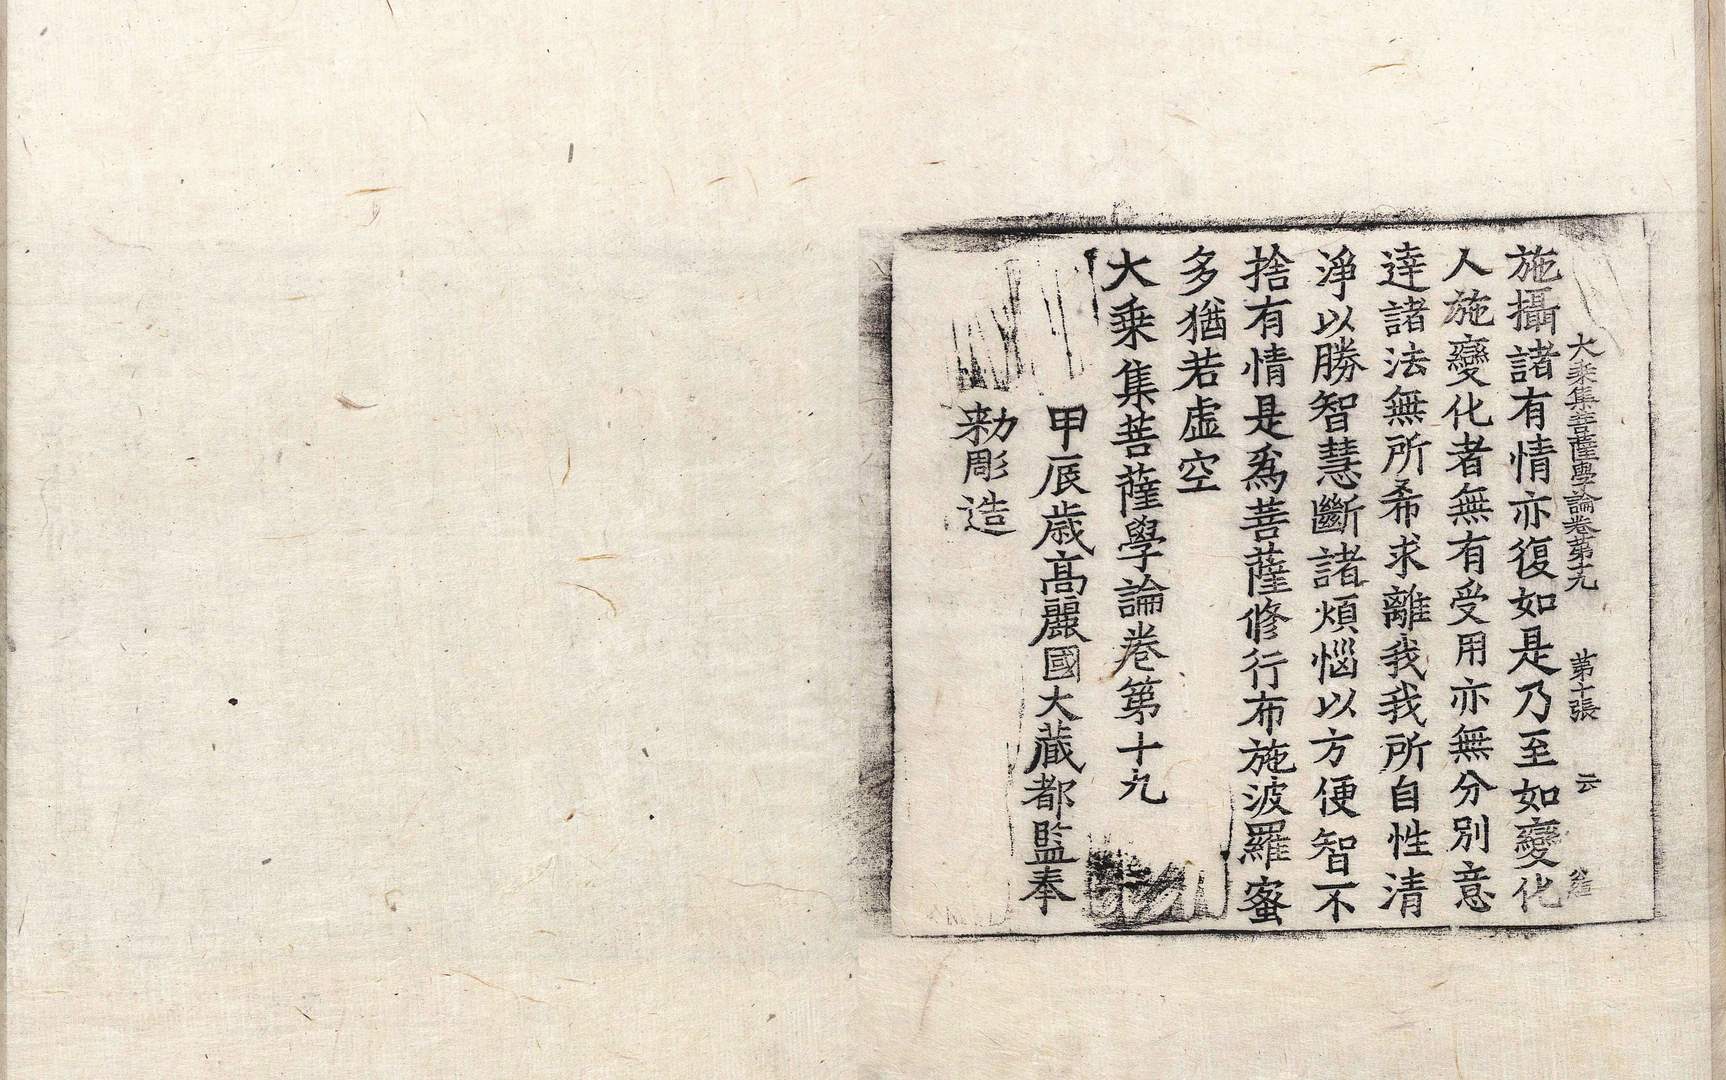 大乘集菩薩學論卷第十九　第十張　云
施攝諸有情亦復如是乃至如變化
人施變化者無有受用亦無分別意
達諸法無所希求離我我所自性清
淨以勝智慧斷諸煩惱以方便智不
捨有情是爲菩薩修行布施波羅蜜
多猶若虛空
大乘集菩薩學論卷第十九
甲辰歲高麗國大藏都監奉
勅彫造